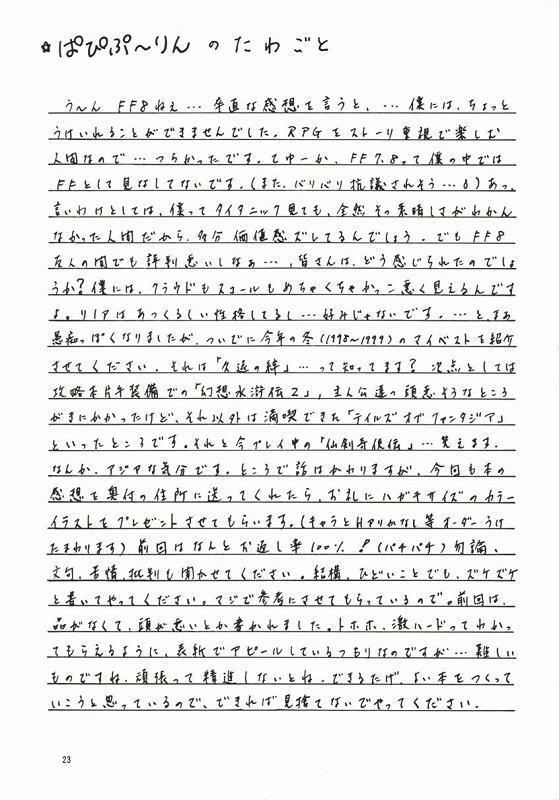 ☆ぱぴぷ〜りんのたわごと
う〜ん FF8ねぇ… 率直な感想を言うと、… 僕には、ちょっと
うけいれることができませんでした。RPGをストーリ重視で楽しむ
人間なので… つらかったです。てゆーか、FF7.8って僕の中では
FFとして見なしてないです。(また、バリバリ抗議されそう…6)あっ、
言いわけとしては、僕ってタイタニック見ても、全然その素晴しさがわかん
なかった人間だから、多分価値感ズレてるんでしょう。でもFF8
友人の間でも評判悪いしなぁ…、皆さんは、どう感じられたのでしょ
うか?僕には、クラウドもスコールもめちゃくちゃかっこ悪く見えるんです
よ。リノアはあっくるしい性格してるし…好みじゃないです。…と、まぁ
愚痴っぽくなりましたが、ついでに今年の冬(1998〜1999)のマイベストを紹介
させてください。それは「久遠の絆」…って知ってます? 次点としては
攻略本片手装備での「幻想水滸伝2」,主人公達の頭悪そうなところ
がきにかかったけど、それ以外は満喫できた「テイルズオブファンタジア」
といったところです。それと今プレイ中の「仙剣奇侠伝」…笑えます。
なんか、アジアな気分です。ところで話はかわりますが、今回も本の
感想を奥付の住所に送ってくれたら、お礼にハガキサイズのカラー
イラストをプレゼントさせてもらいます。(キャラとHアリかなし等オーダーうけ
たまわります)前回はなんとお返し率100%!(パチパチ)勿論、
文句、苦情、批判も聞かせてください。結構、ひどいことでも、ズケズケ
と書いてやってください。マジで参考にさせてもらっているので。前回は、
品がなくて、頭が悪いとか書かれました。トホホ、激ハードってわかっ
てもらえるように、表紙でアピールしているつもりなのですが…難しい
ものですね、頑張って精進しないとね。できるたけ、よい本をつくって
いこうと思っているので、できれば見捨てないでやってください。
23